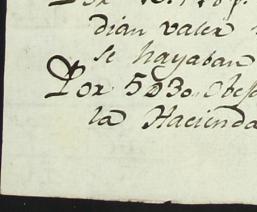 dian valer
se hayaban
Por 5030.
la Hacienda